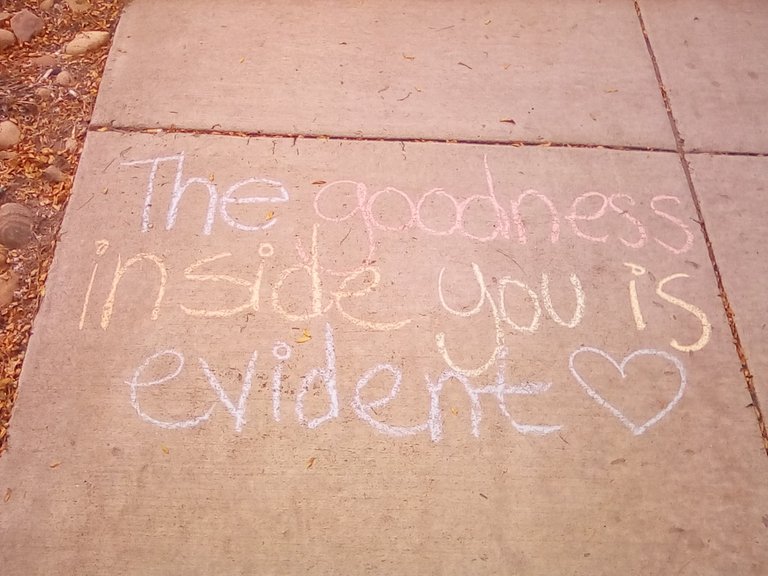 The goodness
inside you is
evident